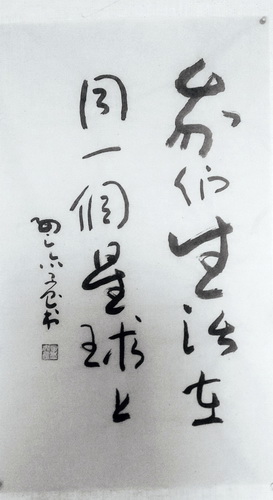 我们生活在
同一個星球上